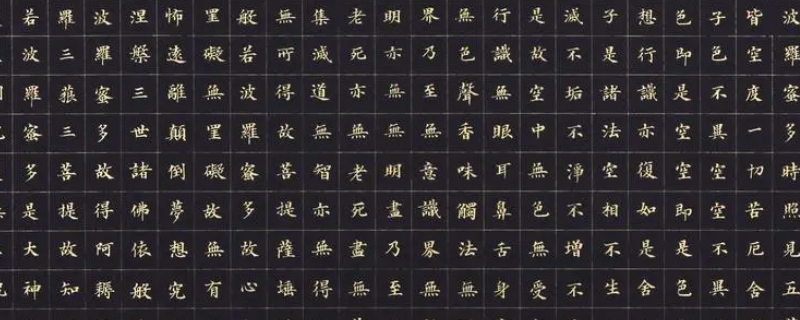 波羅蜜多時照見五
皆空度一切苦厄舍
子色不異空空不異
色即是空空即是色
想行識亦復如是舍
子是諸法空相不生
滅不垢不淨不增不
是故空中無色無受
行識無眼耳鼻舌身
無色聲香味觸法無
界乃至無意識界無
明亦無無明盡乃至
老死亦無老死盡無
集滅道無智亦無得
無所得故菩提薩埵
般若波羅蜜多故心
罣礙無罣礙故無有
怖遠離顛倒夢想究
涅槃三世諸佛依般
波羅蜜多故得阿耨
羅三藐三菩提故知
若波羅蜜多是大神